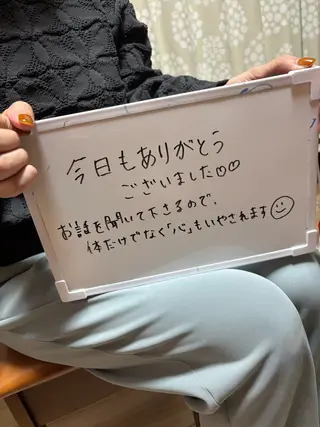 今日もありがとう
ございました♡♡
お話を聞いて下さるので、
体だけでなく「心」もいやされます☺